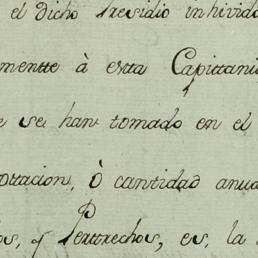 el dicho Presidio inhivido
mentte à estta Capittani
e se han tomado en el
ottacion, ò cantidad anua
os, y Perttrechos, es, la